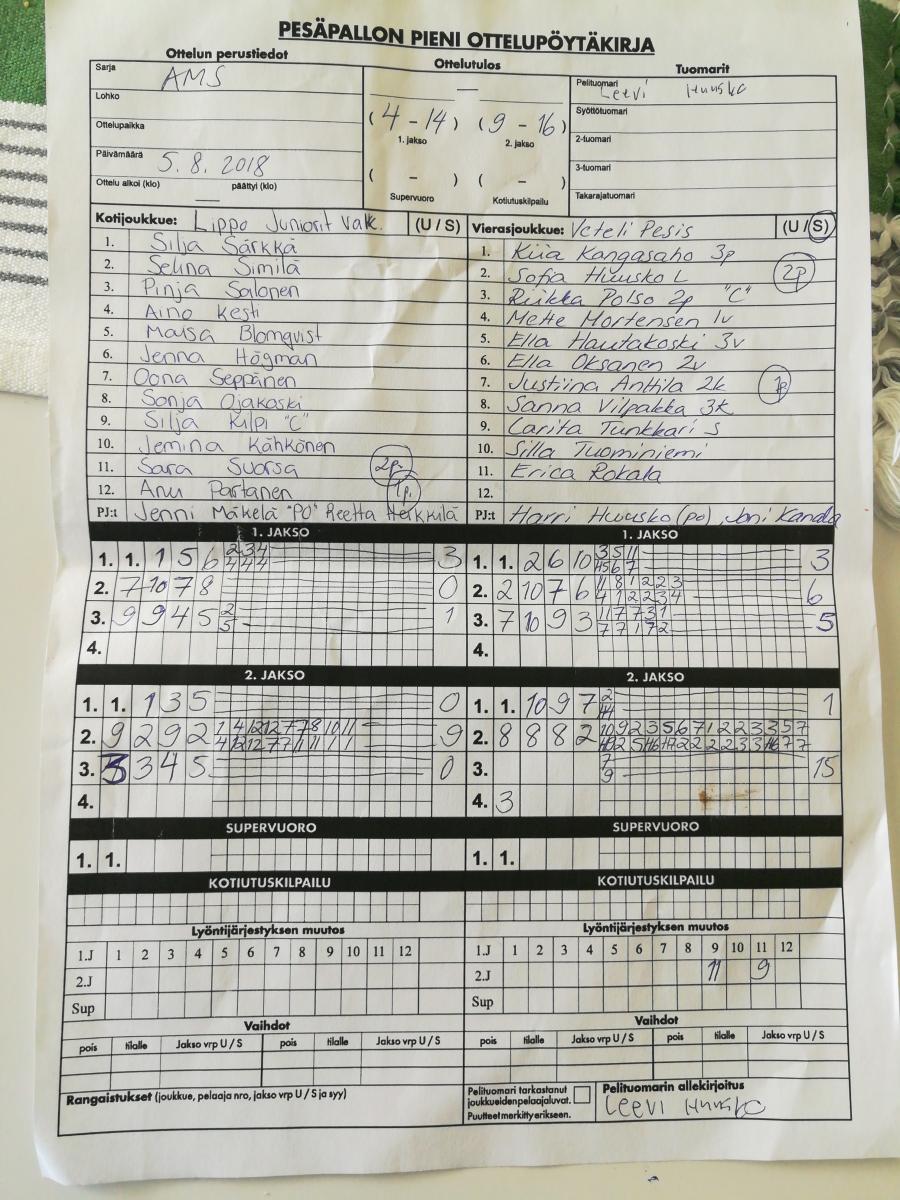 PESÄPALLON PIENI OTTELUPÖYTÄKIRJA
Ottelun perustiedot
Ottelutulos
Tuomarit
Sarja AMS
Lohko
Ottelupaikka
Päivämäärä 5.8.2018
Ottelu alkoi (klo) päättyi (klo)
—
(4 - 14) (9 - 16)
1. jakso 2. jakso
( - ) ( - )
Supervuoro Kotiutuskilpailu
Pelituomari Leevi Huusko
Syöttötuomari
2-tuomari
3-tuomari
Takarajatuomari
Kotijoukkue: Lippo Juniorit Valk. (U / S)
1. Silja Särkkä
2. Selina Similä
3. Pinja Salonen
4. Aino Kesti
5. Maisa Blomqvist
6. Jenna Högman
7. Oona Seppänen
8. Sonja Ojakoski
9. Silja Kilpi "C"
10. Jemina Kähkönen
11. Sara Suorsa 2p.
12. Anu Partanen 1p.
PJ:t Jenni Mäkelä "PO" Reetta Heikkilä
Vierasjoukkue: Veteli Pesis (U / S)
1. Kiia Kangasaho 3p
2. Sofia Huusko L 2p
3. Riikka Polso 2p "C"
4. Mette Mortensen 1v
5. Ella Hautakoski 3v
6. Ella Oksanen 2v
7. Justiina Anttila 2k 1p
8. Sanna Vilpakka 3k
9. Carita Tunkkari S
10. Silla Tuominiemi
11. Erica Rokala
12.
PJ:t Harri Huusko (po), Joni Kandla
1. JAKSO
1. 1. 1 5 6 2 3 4 3
4 4 4
2. 7 10 7 8 0
3. 9 9 4 5 2 1
5
4.
1. JAKSO
1. 1. 2 6 10 3 5 11 3
45 6 7
2. 2 10 7 6 11 8 1 2 2 3 6
4 1 2 2 3 4
3. 7 10 9 3 11 7 7 3 1 5
7 7 1 7 2
4.
2. JAKSO
1. 1. 1 3 5 0
2. 9 2 9 2 1 4 12 12 7 7 8 10 11 9
4 12 12 7 7 11 11 1 1
3. 3 3 4 5 0
4.
2. JAKSO
1. 1. 10 9 7 2 1
44
2. 8 8 8 2 10 9 2 3 5 6 7 1 2 2 3 3 5 7
3. 7 15
9
4. 3
SUPERVUORO
1. 1.
SUPERVUORO
1. 1.
KOTIUTUSKILPAILU
KOTIUTUSKILPAILU
Lyöntijärjestyksen muutos
1.J 1 2 3 4 5 6 7 8 9 10 11 12
2.J
Sup
Lyöntijärjestyksen muutos
1.J 1 2 3 4 5 6 7 8 9 10 11 12
2.J 11 9
Sup
Vaihdot
pois tilalle Jakso vrp U / S pois tilalle Jakso vrp U / S
Vaihdot
pois tilalle Jakso vrp U / S pois tilalle Jakso vrp U / S
Rangaistukset (joukkue, pelaaja nro, jakso vrp U / S ja syy)
Pelituomari tarkastanut
joukkueiden pelaajaluvat.
Puutteet merkitty erikseen.
Pelituomarin allekirjoitus
Leevi Huusko